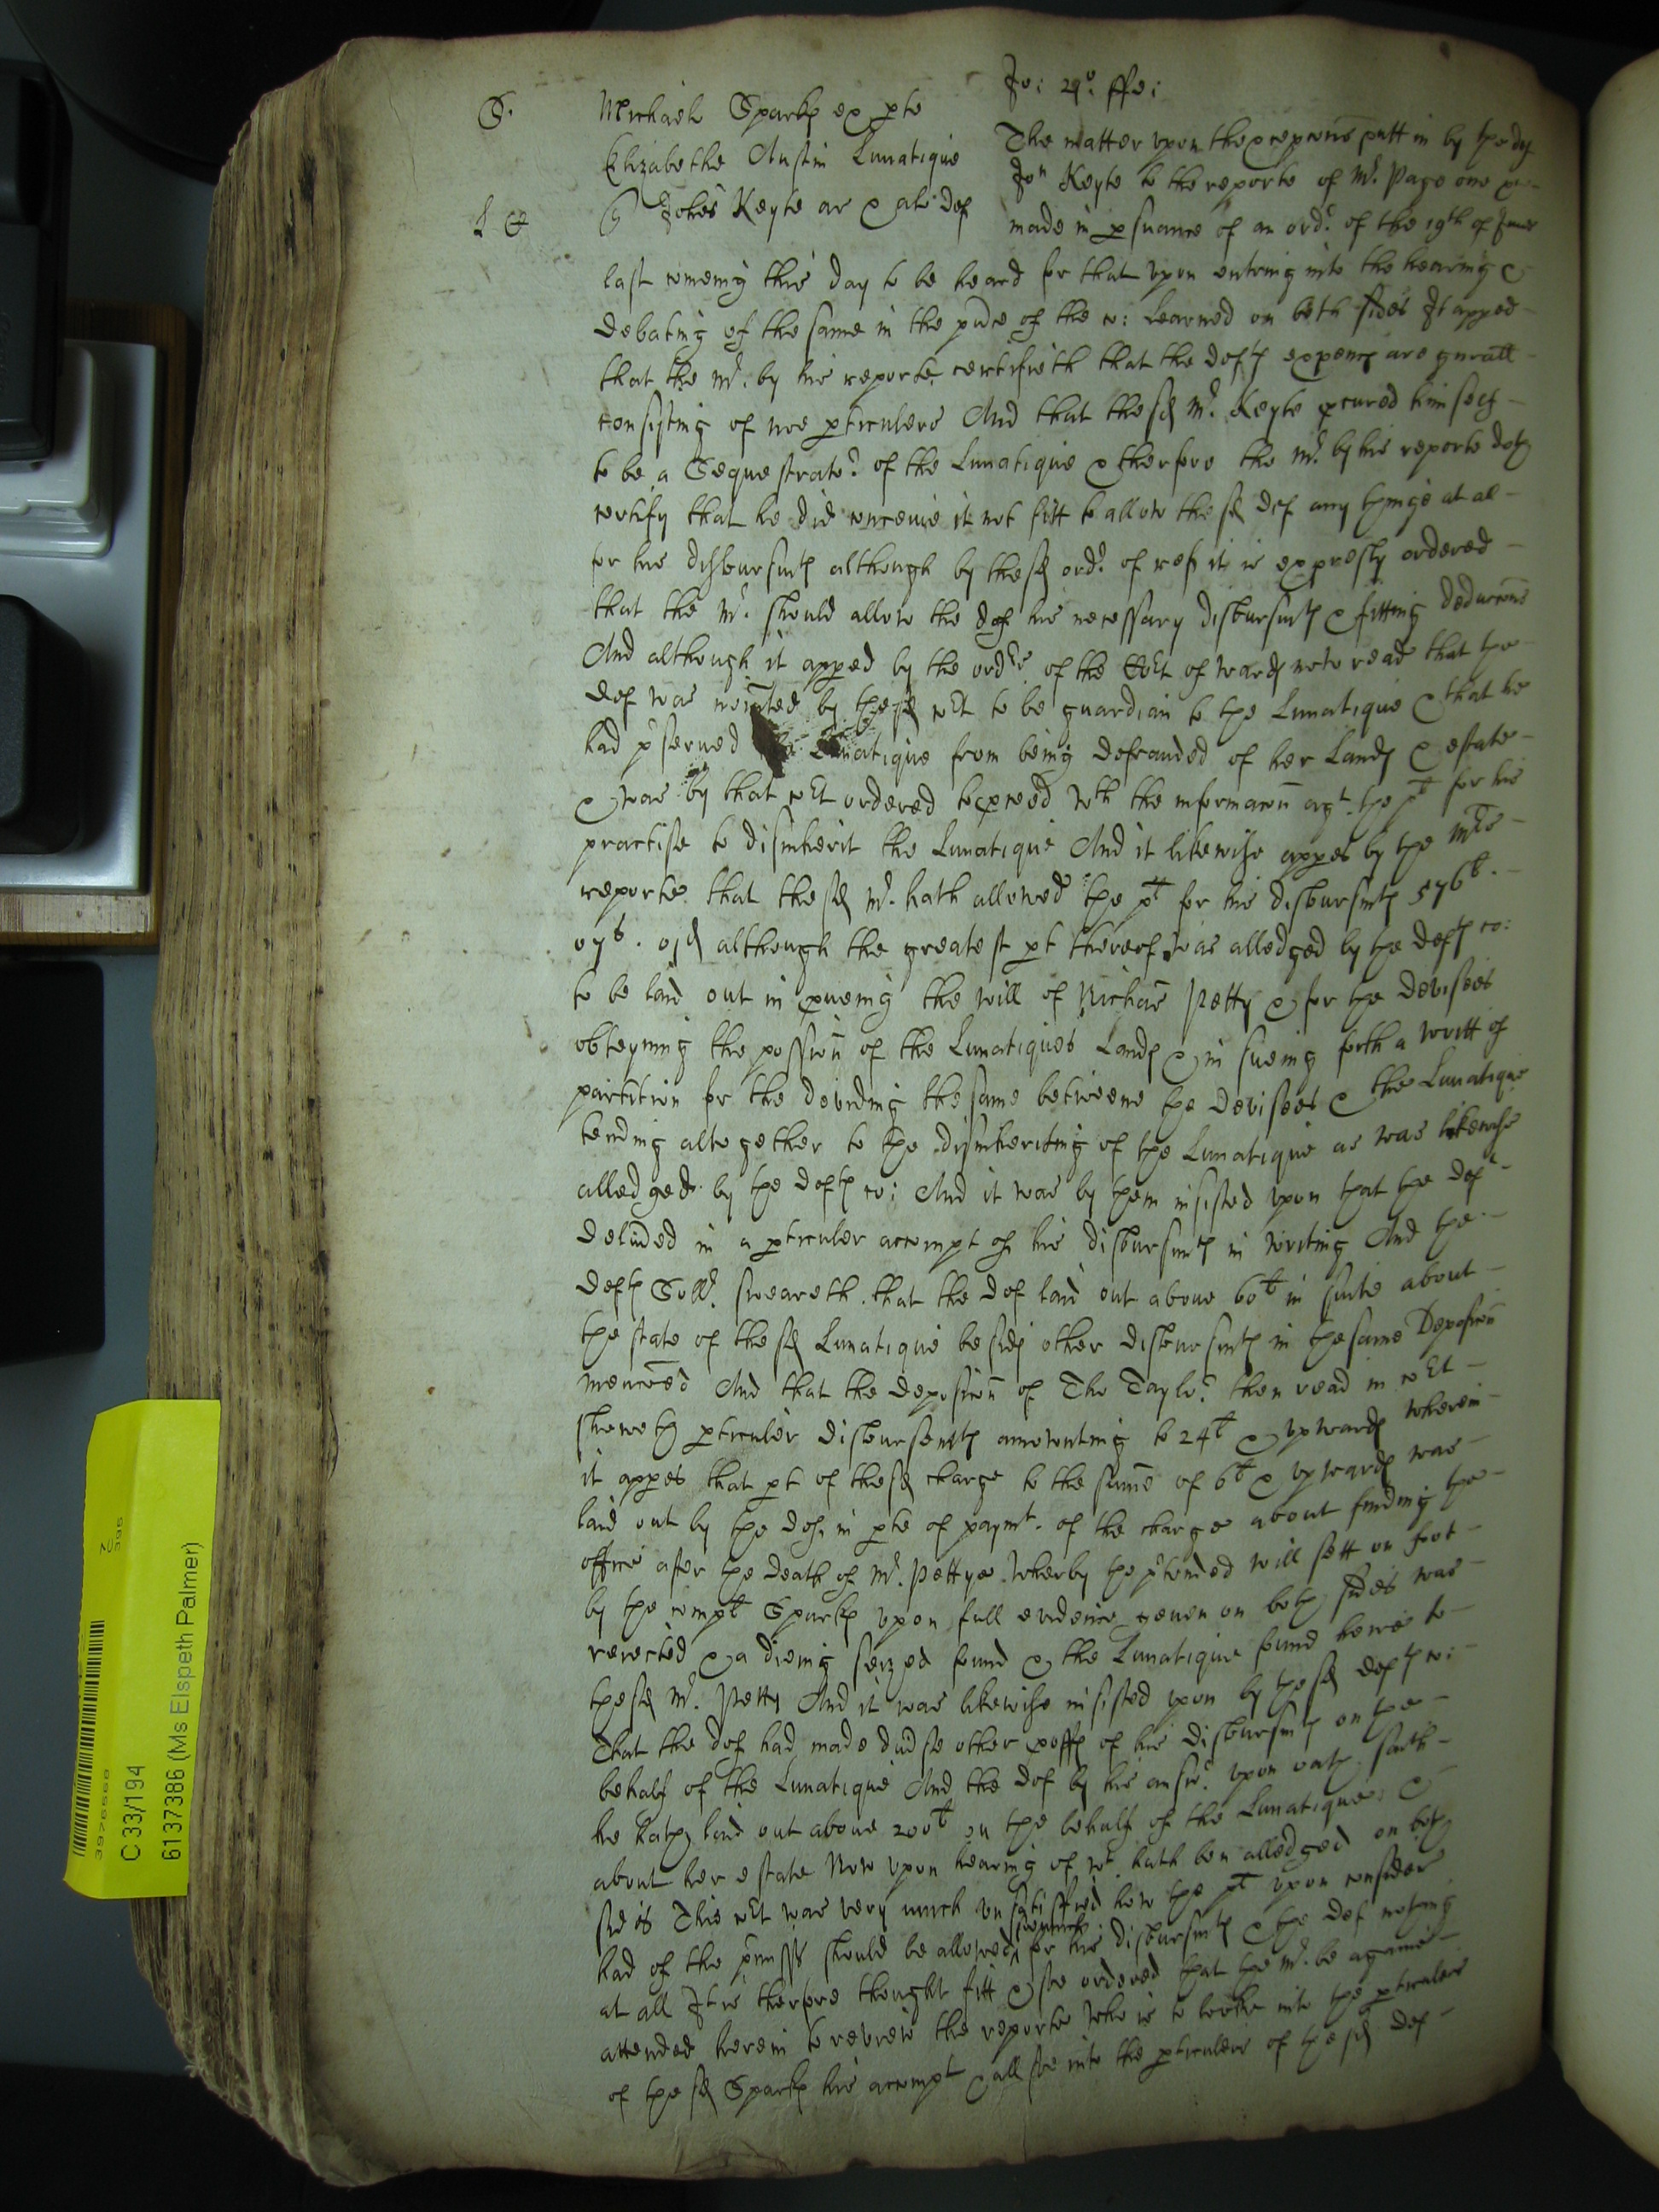 Jo: 29o: ffe:
S. Michaell Sparks ex pte
Elizabethe Austin Lunatique
Johes Keyte ar & al def
The matter upon the excepcons putt in by the def
Jon Keyte to the reporte of Mr. Page one &c
made in psuance of an ordr. of the 19th of June
last comeing this day to be heard for that upon entring into the hearing &
debating of the same in the pnce of the co: Learned on both sides It apped
that the Mr. by his reporte certifieth that the defts expences are gnrall
consisting of noe pticulers And that the sd Mr. Keyte pcured himself
to be a Sequestrator of the Lunatique & therfore the Mr. by his reporte doth
certify that he did conceive it not fitt to allow the sd def any thinge at al
for his disbursmts although by the sd ordr. of refr it is expresly ordered
that the Mr. should allow the def his necessary disbursmts & fitting deduccons
And although it apped by the ordrs. of the Cort of wards now read that the
def was by the sd cort to be guardian to the Lunatique & that he
had pserved Lunatique from being defrauded of her Lands & estate
& was by that cort ordered to pceed wth the informacon agt. the plt for his
practise to disinherit the Lunatique And it likewise appes by the Mrs
reporte that the sd Mr. hath allowed the plt for his disbursmts 576l.
07s. 01d although the greatest pt thereof was alledged by the defts co:
to be laid out in pveing the will of Richard Petty & for the devisees
obteyning the possion of the Lunatiques Lands & in sueing forth a writt of
partition for the deviding the same betweene the devisees & the Lunatique
tending altogether to the disinheriting of the Lunatique as was likewise
alledged by the defts co: And it was by them insisted upon that the def
delivred in a pticuler accompt of his disbursmts in writing And the
defts Sollr. sweareth that the def laid out above 60l in suite about
the state of the sd Lunatique besids other disbursmts in the same Deposicon
mencoed And that the deposicon of Tho Taylor then read in cort
sheweth pticuler disbursemts amounting to 24l & upwards wherein
it appes that pt of the sd charge to the sume of 6l & upwards was
laid out by the def in pte of paymt. of the charge about finding the
office after the death of Mr. Pettye wherby the ptended will sett on foot
by the complt Sparks upon full evidence geven on both sides was
reiected & a dieing seized found & the Lunatique found heire to
the sd Mr. Petty And it was likewise insisted upon by the sd defts co:
That the def had made divse other pofs of his disbursmts on the
behalf of the Lunatique And the def by his answr. upon oath saith
he hath laid out above 200l on the behalf of the Lunatique &
about her estate Now upon hearing of wt hath ben alledged on both
sides This cort was very much unsatisfied how the plt upon consideracon
had of the pmisses should be allowed soe much for his disbursmts & the def nothing
at all It is therfore thought fitt & soe ordered that the Mr. be againe
attended herein to review the reporte who is to looke into the pticulers
of the sd Sparks his accompt & allsoe into the pticulers of the sd def
3976568
C 33/194
6137386 (Ms Elspeth Palmer)